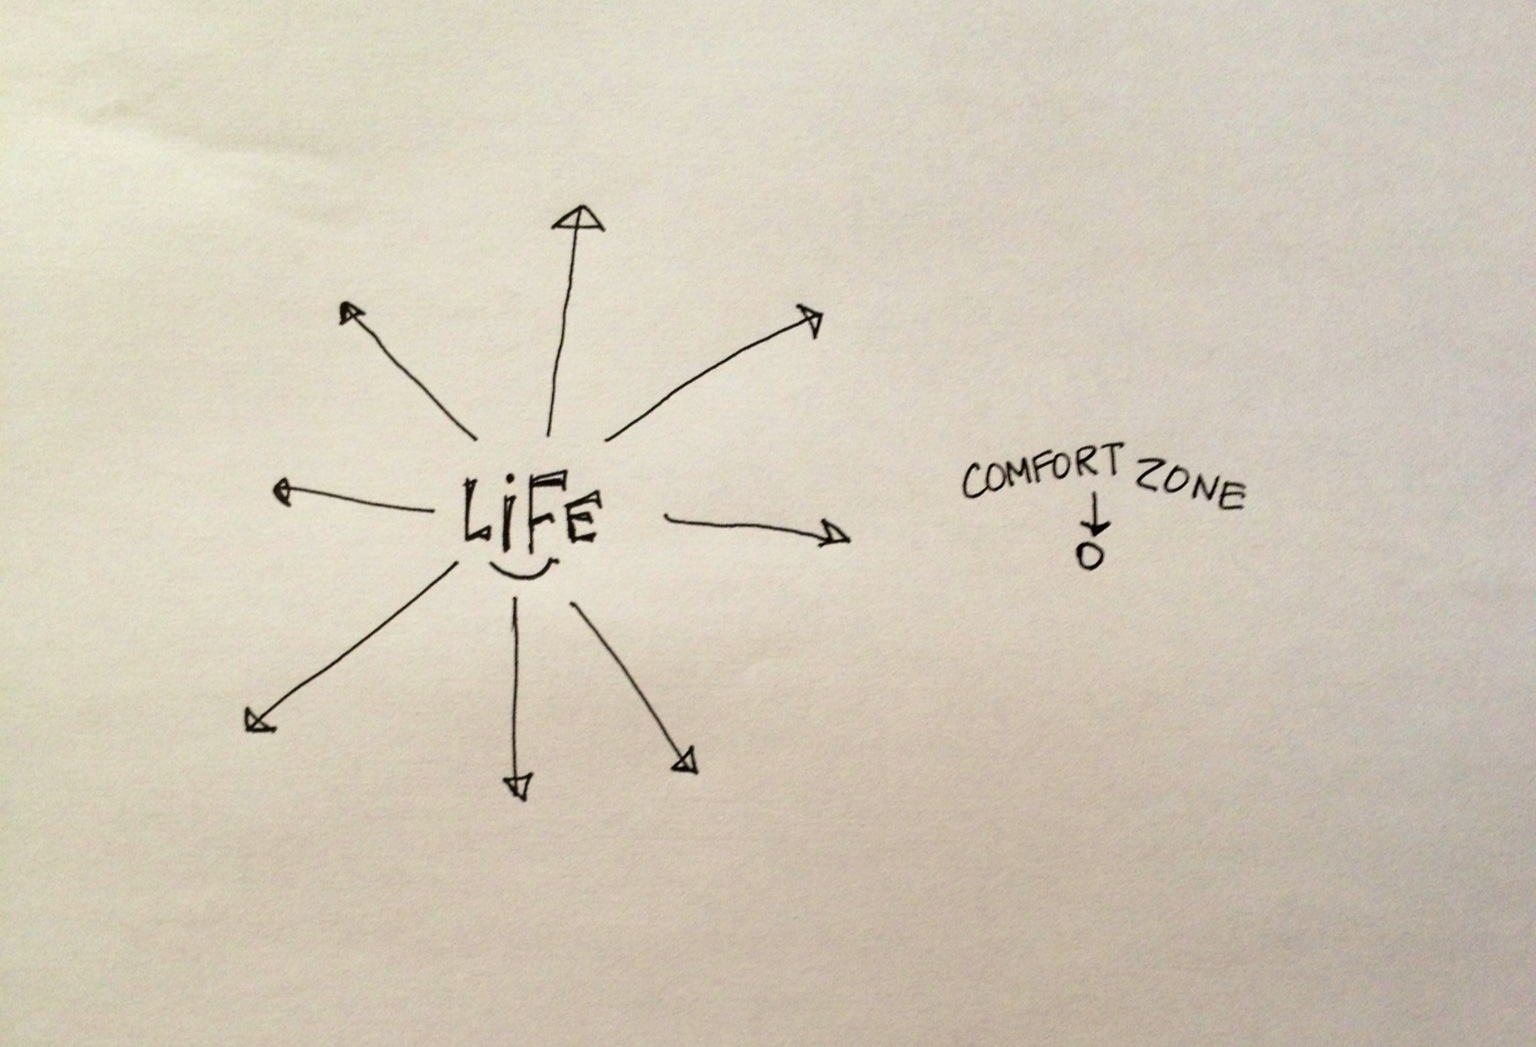 LiFe
COMFORT ZONE